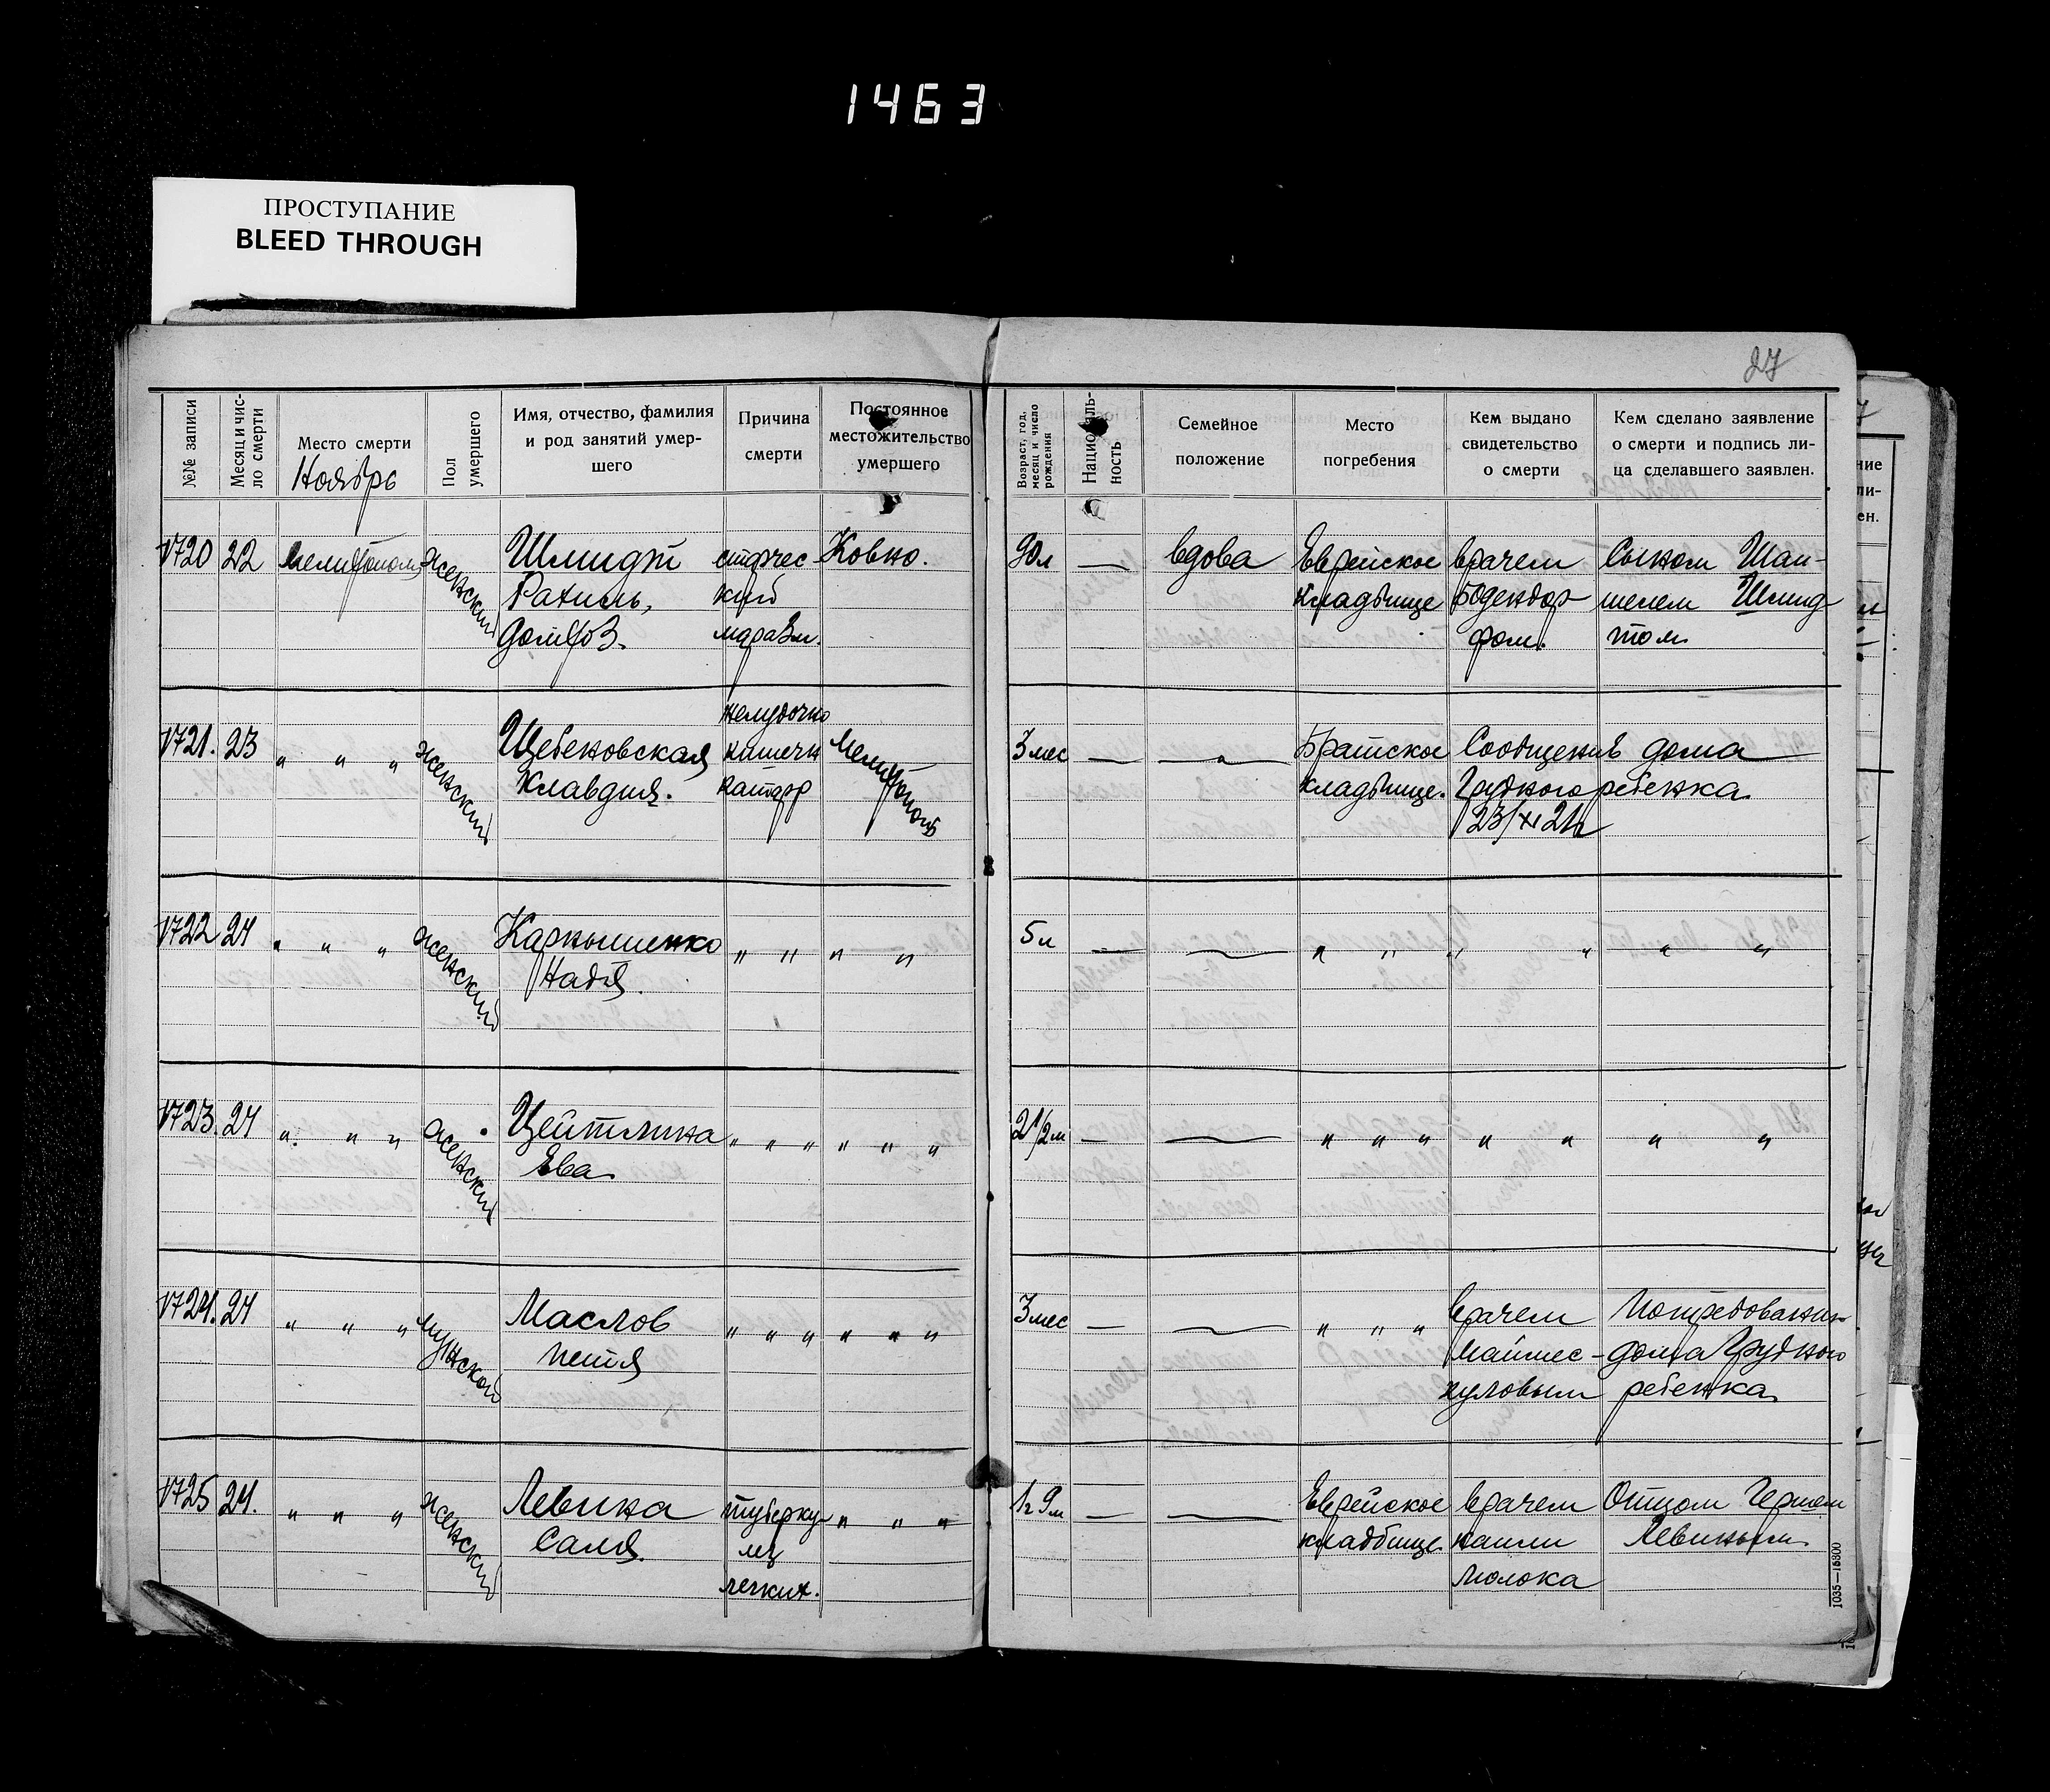 1463
ПРОСТУПАНИЕ
BLEED THROUGH
27
№№ записи
Месяц и чис-
ло смерти
Место смерти
Ноябрь
Пол
умершего
Имя, отчество, фамилия
и род занятий умер-
шего
Причина
смерти
Постоянное
местожительство
умершего
Возраст, год,
месяц и число
рождения
Националь-
ность
Семейное
положение
Место
погребения
Кем выдано
свидетельство
о смерти
Кем сделано заявление
о смерти и подпись ли-
ца сделавшего заявлен.
1720 22 Мелитополь женский Шмидт старчес- Ковно. 90л — вдова Еврейское врачем Сыном
Рахиль, кий кладбище Бодендор- Шмид
домхоз. маразм. фом. том
1721. 23 " " " женский Щебековская желудочно Мелитополь 3 мес — — Братское Сообщение дома
Клавдия. кишечн кладбище. Грудного ребенка
катарр 23/XI 21г
1722 24 " " " женский Надя. " " " " 5м — — " " " " " "
1723. 24 " " " женский Цейтлина " " " " " " 2 1/2м — — " " " " " " "
Ева
1724. 24 " " " мужской Маслов " " " " " " 3 мес — — " " " врачем
Петя дома Грудного
ребенка
1725 24. " " " женский Левина туберку- " " " 1г 9м — — Еврейское врачем Отцом
Саля. лез кладбище капли Левиным
легких. молока
1035—16800